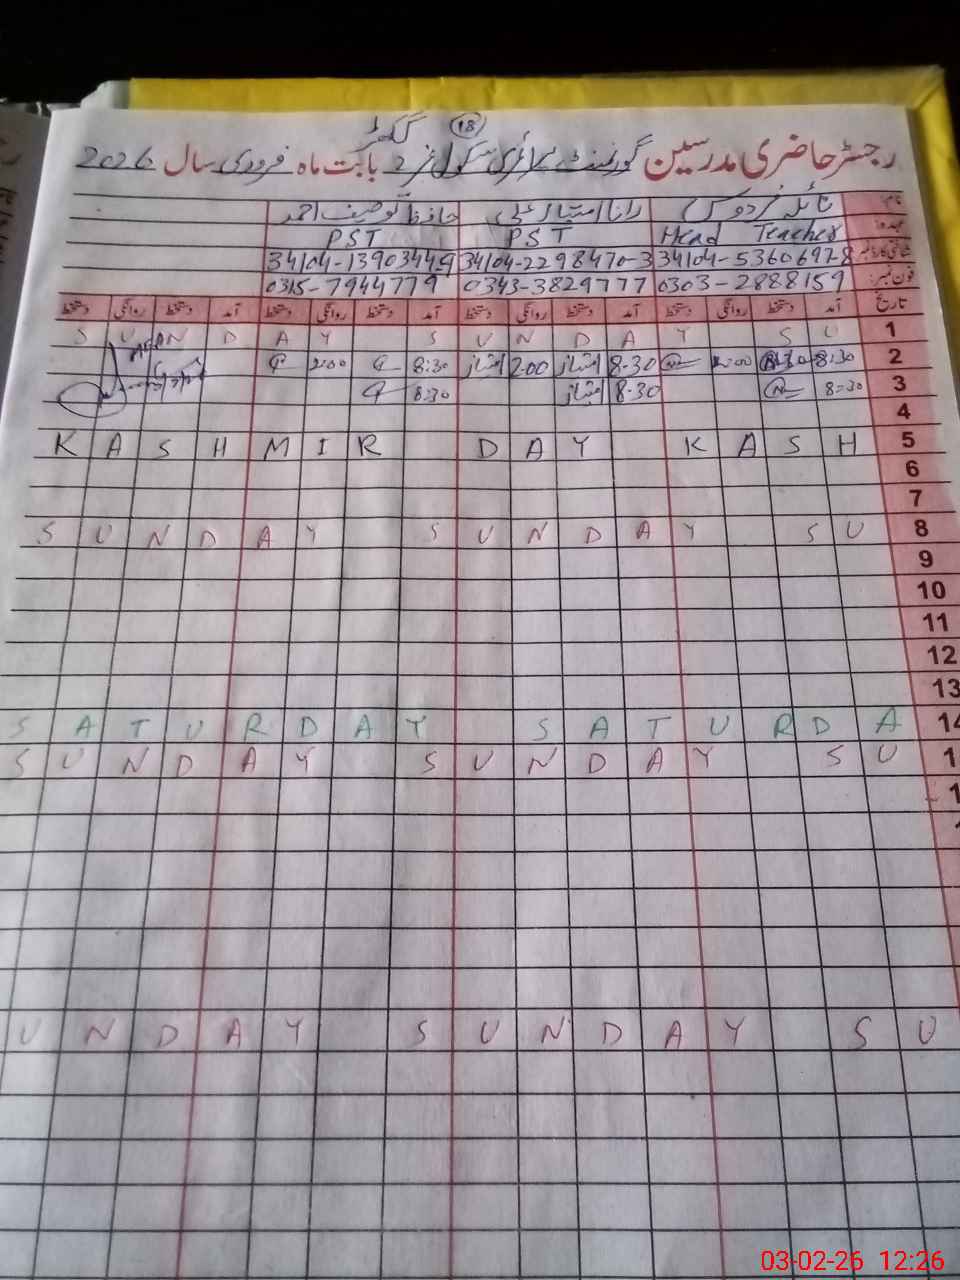 18 گکھڑ
رجسٹر حاضری مدرسین گورنمنٹ پرائمری سکول نمبر 2 بابت ماہ فروری سال 2026
نام: نائلہ فردوس رانا امتیاز علی حافظ توصیف احمد
عہدہ: Head Teacher PST PST
شناختی کارڈ نمبر 34104-5360697-8 34104-2298470-3 34104-1390344-9
فون نمبر: 0303-2888159 0343-3829777 0315-7944779
تاریخ آمد دستخط روانگی دستخط آمد دستخط روانگی دستخط آمد دستخط روانگی دستخط آمد دستخط روانگی دستخط
1 S U N D A Y S U N D A Y S U
2 8:30 2:00 8.30 امتیاز 2.00 امتیاز 8:30 2:00
3 8:30 8.30 امتیاز 8:30
4
5 K A S H M I R D A Y K A S H
6
7
8 S U N D A Y S U N D A Y S U
9
10
11
12
13
14 S A T U R D A Y S A T U R D A
1 S U N D A Y S U N D A Y S U
1
U N D A Y S U N D A Y S U
03-02-26 12:26